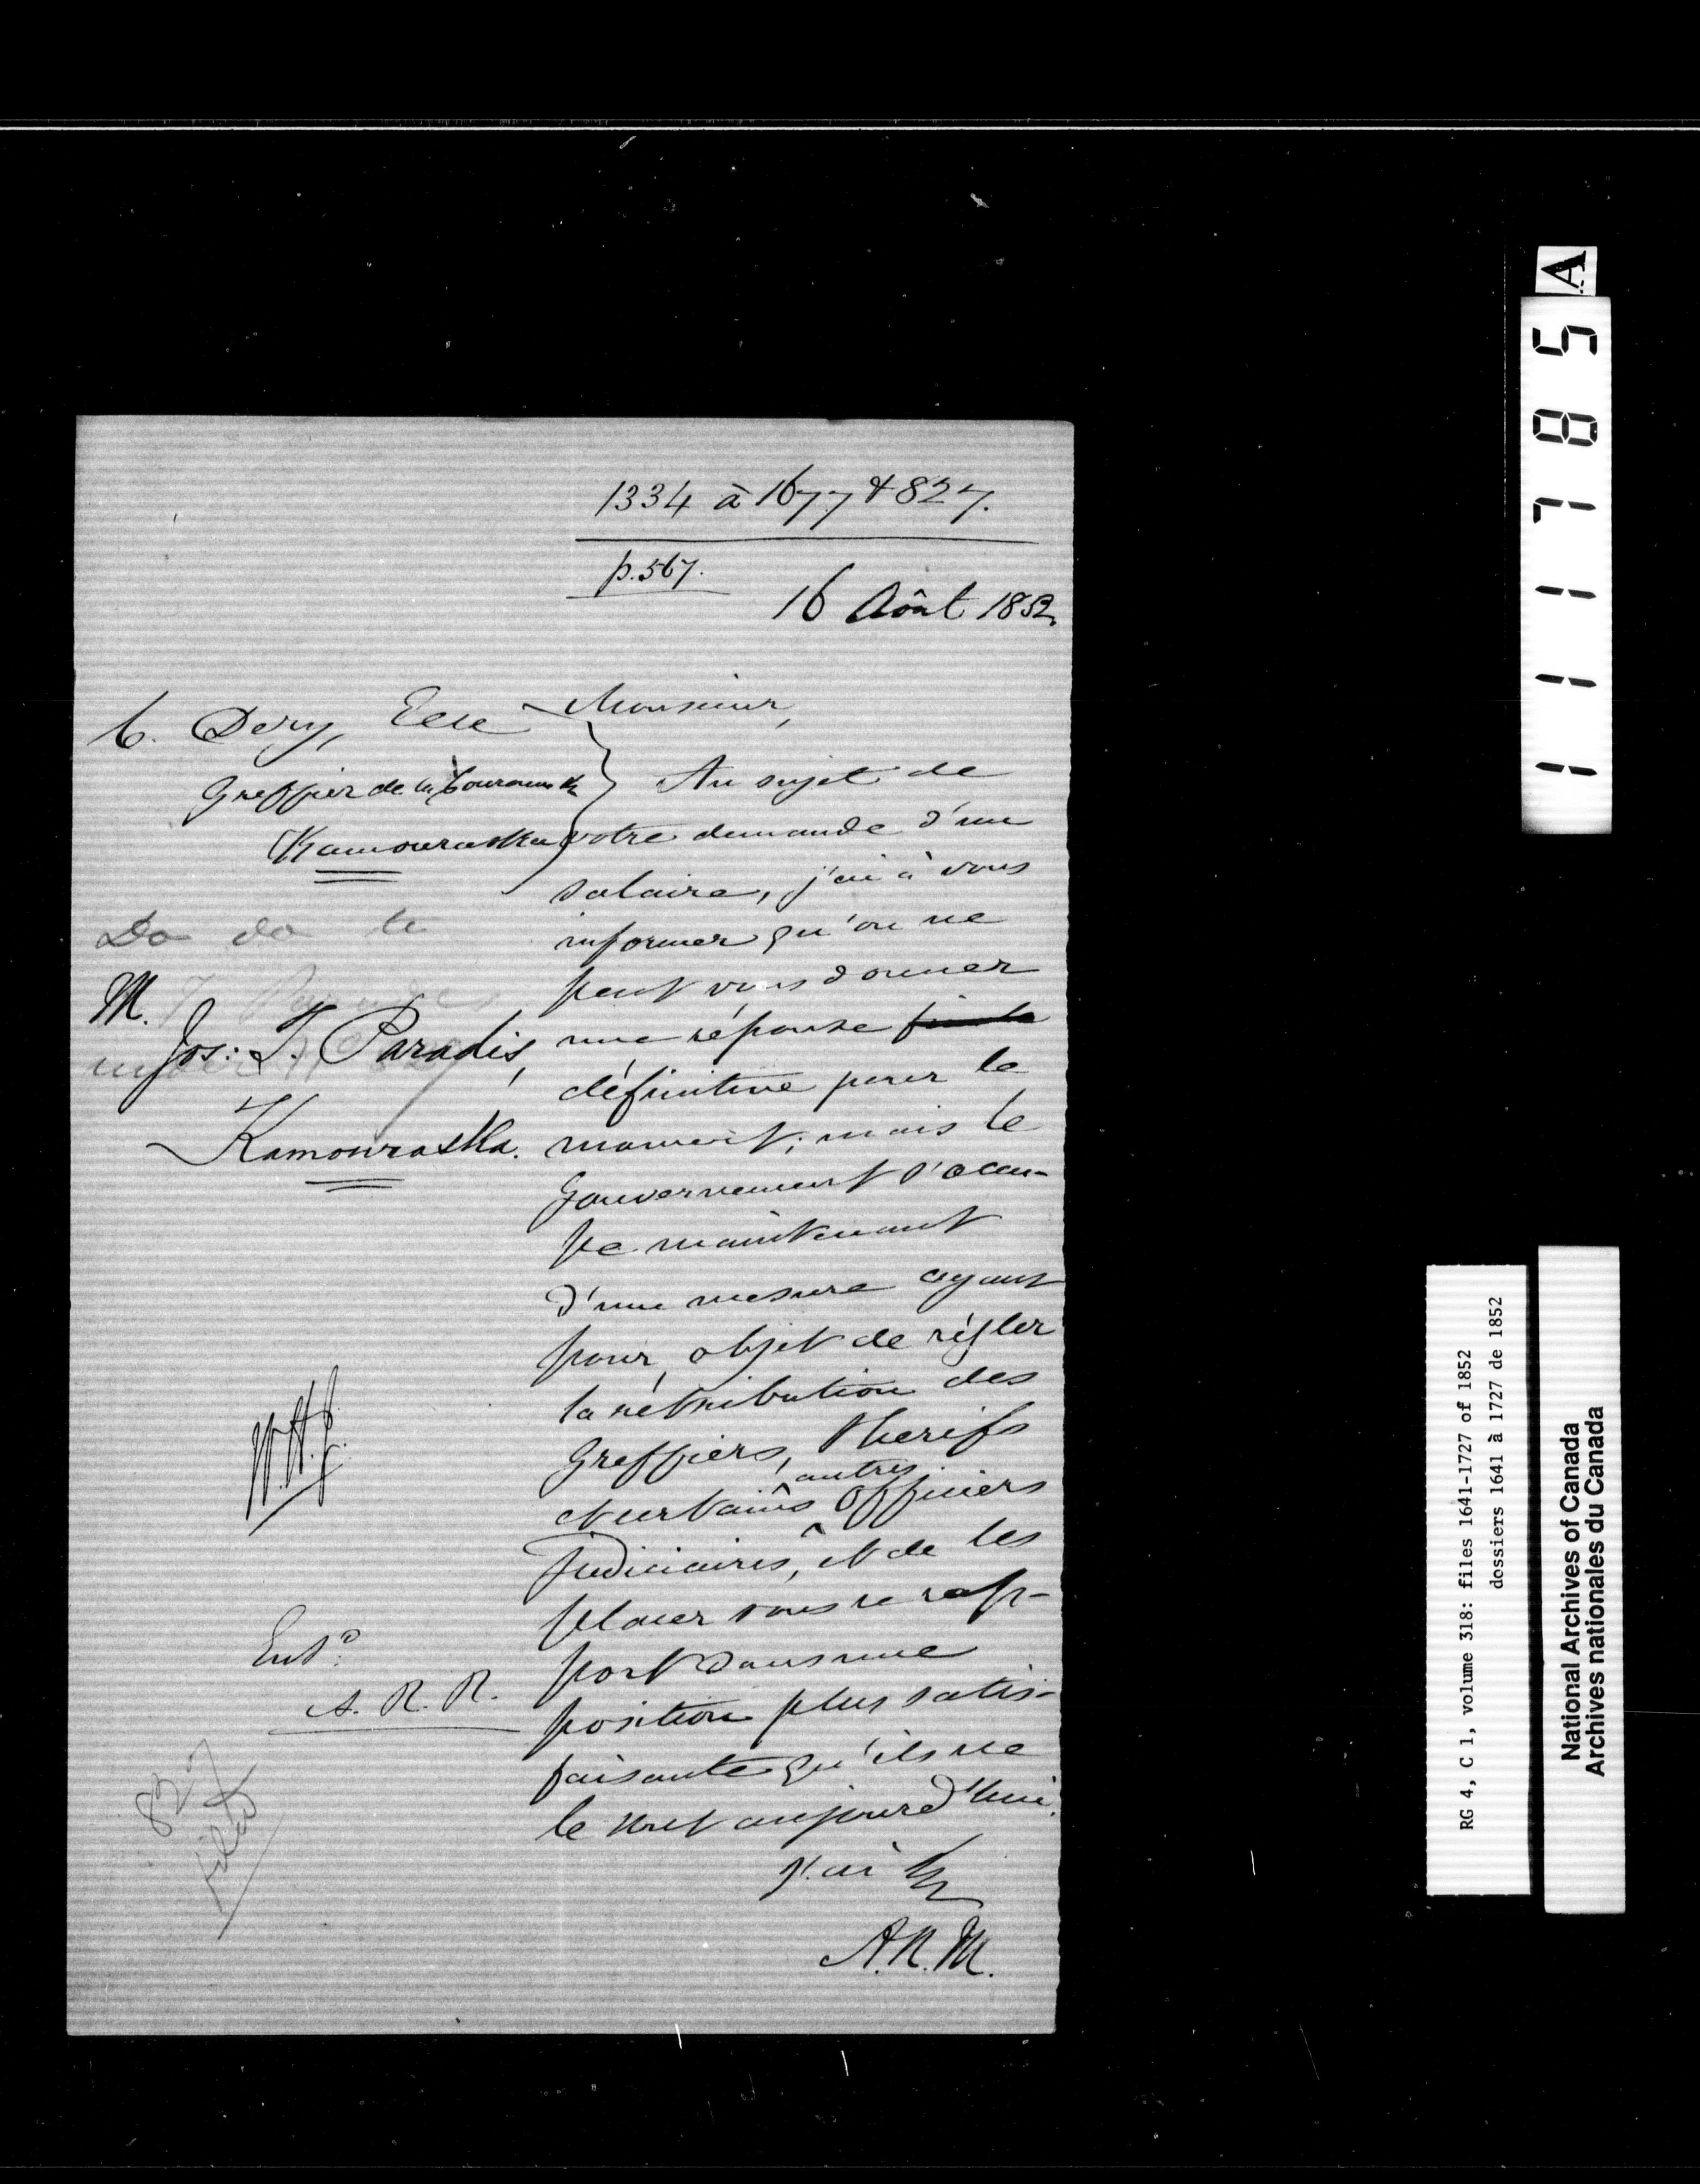 1334 à 1677 & 827.
p. 567.
16 Aôut 1852.
C. Dery, Ecr
Greffier de la Couronne &c
Kamouraska
Do do to
M.
Jos: T. Paradis,
under
Kamouraska.
Monsieur,
Au sujet de
votre demande d'un
salaire, j'ai à vous
informer qu'on ne
peut vous donner
une réponse
définitive pour le
moment; mais le
Gouvernement s'occu-
pe maintenant
d'une mesure ayant
pour objet de régler
la rétribution des
Greffiers, Sherifs
et certains autres Officiers
Judiciaires, et de les
placer sous ce rap-
port dans une
position plus satis-
faisante qu'ils ne
le sont aujourd'hui.
J'ai &c
A.N.M.
Entd:
A. R. R.
827
filed
111785
A
RG 4, C 1, volume 318: files 1641-1727 of 1852
dossiers 1641 à 1727 de 1852
National Archives of Canada
Archives nationales du Canada